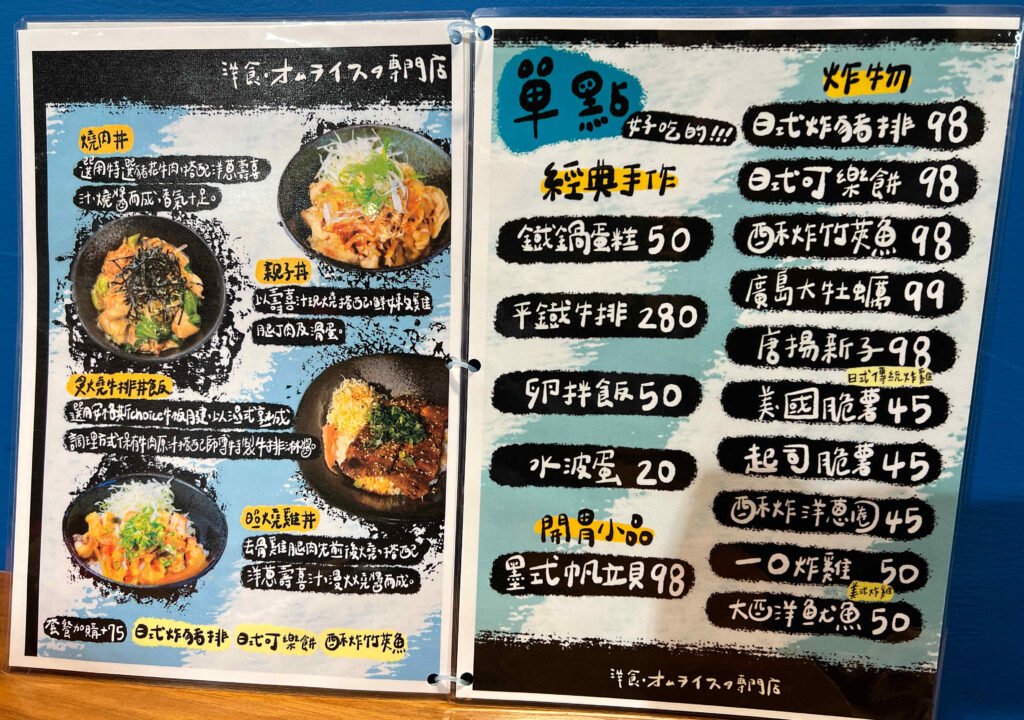 洋食・オムライスの専門店
燒肉丼
選用特選雪花牛肉,搭配洋蔥壽喜
汁,燒醬而成,香氣十足。
親子丼
以壽喜汁現燒搭配新鮮雞
腿丁肉及滑蛋。
炙燒牛排丼飯
選用安格斯choice牛板腱,以濕式熟成
調理方式保有牛肉原汁搭配師傅特製牛排淋醬。
照燒雞丼
去骨雞腿肉先煎後燒,搭配
洋蔥壽喜汁,漫火燒醬而成。
套餐加購+75 日式炸豬排 日式可樂餅 酥炸竹莢魚
單點
好吃的!!!
經典手作
鐵鍋蛋糕 50
平鐵牛排 280
卵拌飯 50
水波蛋 20
開胃小品
墨式帆立貝 98
炸物
日式炸豬排 98
日式可樂餅 98
酥炸竹莢魚 98
廣島大牡蠣 99
唐揚新子 98
日式傳統炸雞
美國脆薯 45
起司脆薯 45
酥炸洋蔥圈 45
一口炸雞 50
美式炸雞
大西洋魷魚 50
洋食・オムライスの専門店